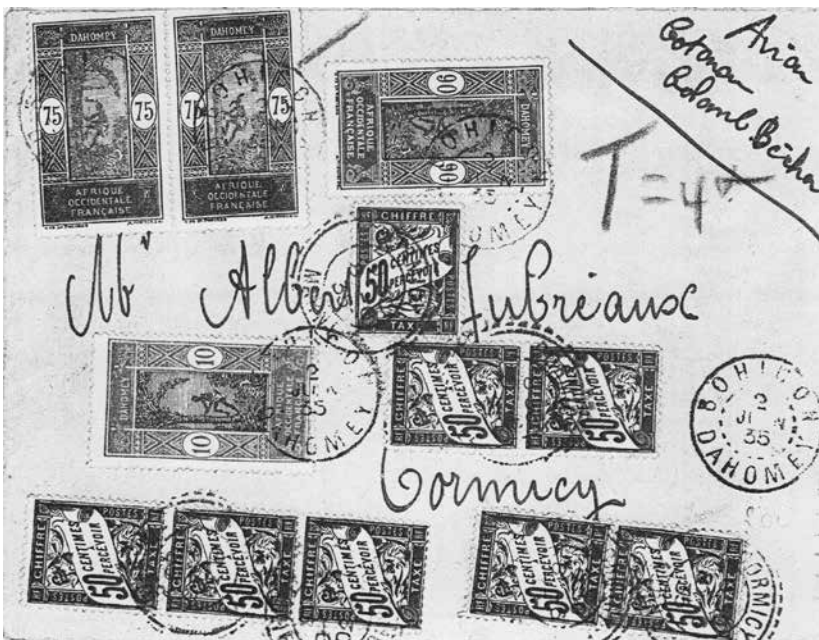 DAHOMEY
75 75
AFRIQUE
OCCIDENTALE
FRANÇAISE
DAHOMEY
75 75
AFRIQUE
OCCIDENTALE
FRANÇAISE
DAHOMEY
90 90
AFRIQUE
OCCIDENTALE
FRANÇAISE
Avion
Cotonou
Colomb Béchar
T = 4
CHIFFRE
50 CENTIMES
PERCEVOIR
TAXE
Mr Albert Jubréaux
DAHOMEY
10 10
2
35
DAHOMEY
CHIFFRE POSTES
50 CENTIMES
PERCEVOIR
TAXE
CHIFFRE POSTES
50 CENTIMES
PERCEVOIR
TAXE
BOHICON
2
JUIN
35
DAHOMEY
Cormicy
CHIFFRE POSTES
50 CENTIMES
PERCEVOIR
TAXE
CHIFFRE POSTES
50 CENTIMES
PERCEVOIR
TAXE
CHIFFRE POSTES
50 CENTIMES
PERCEVOIR
TAXE
CHIFFRE POSTES
50 CENTIMES
PERCEVOIR
TAXE
CHIFFRE POSTES
50 CENTIMES
PERCEVOIR
TAXE